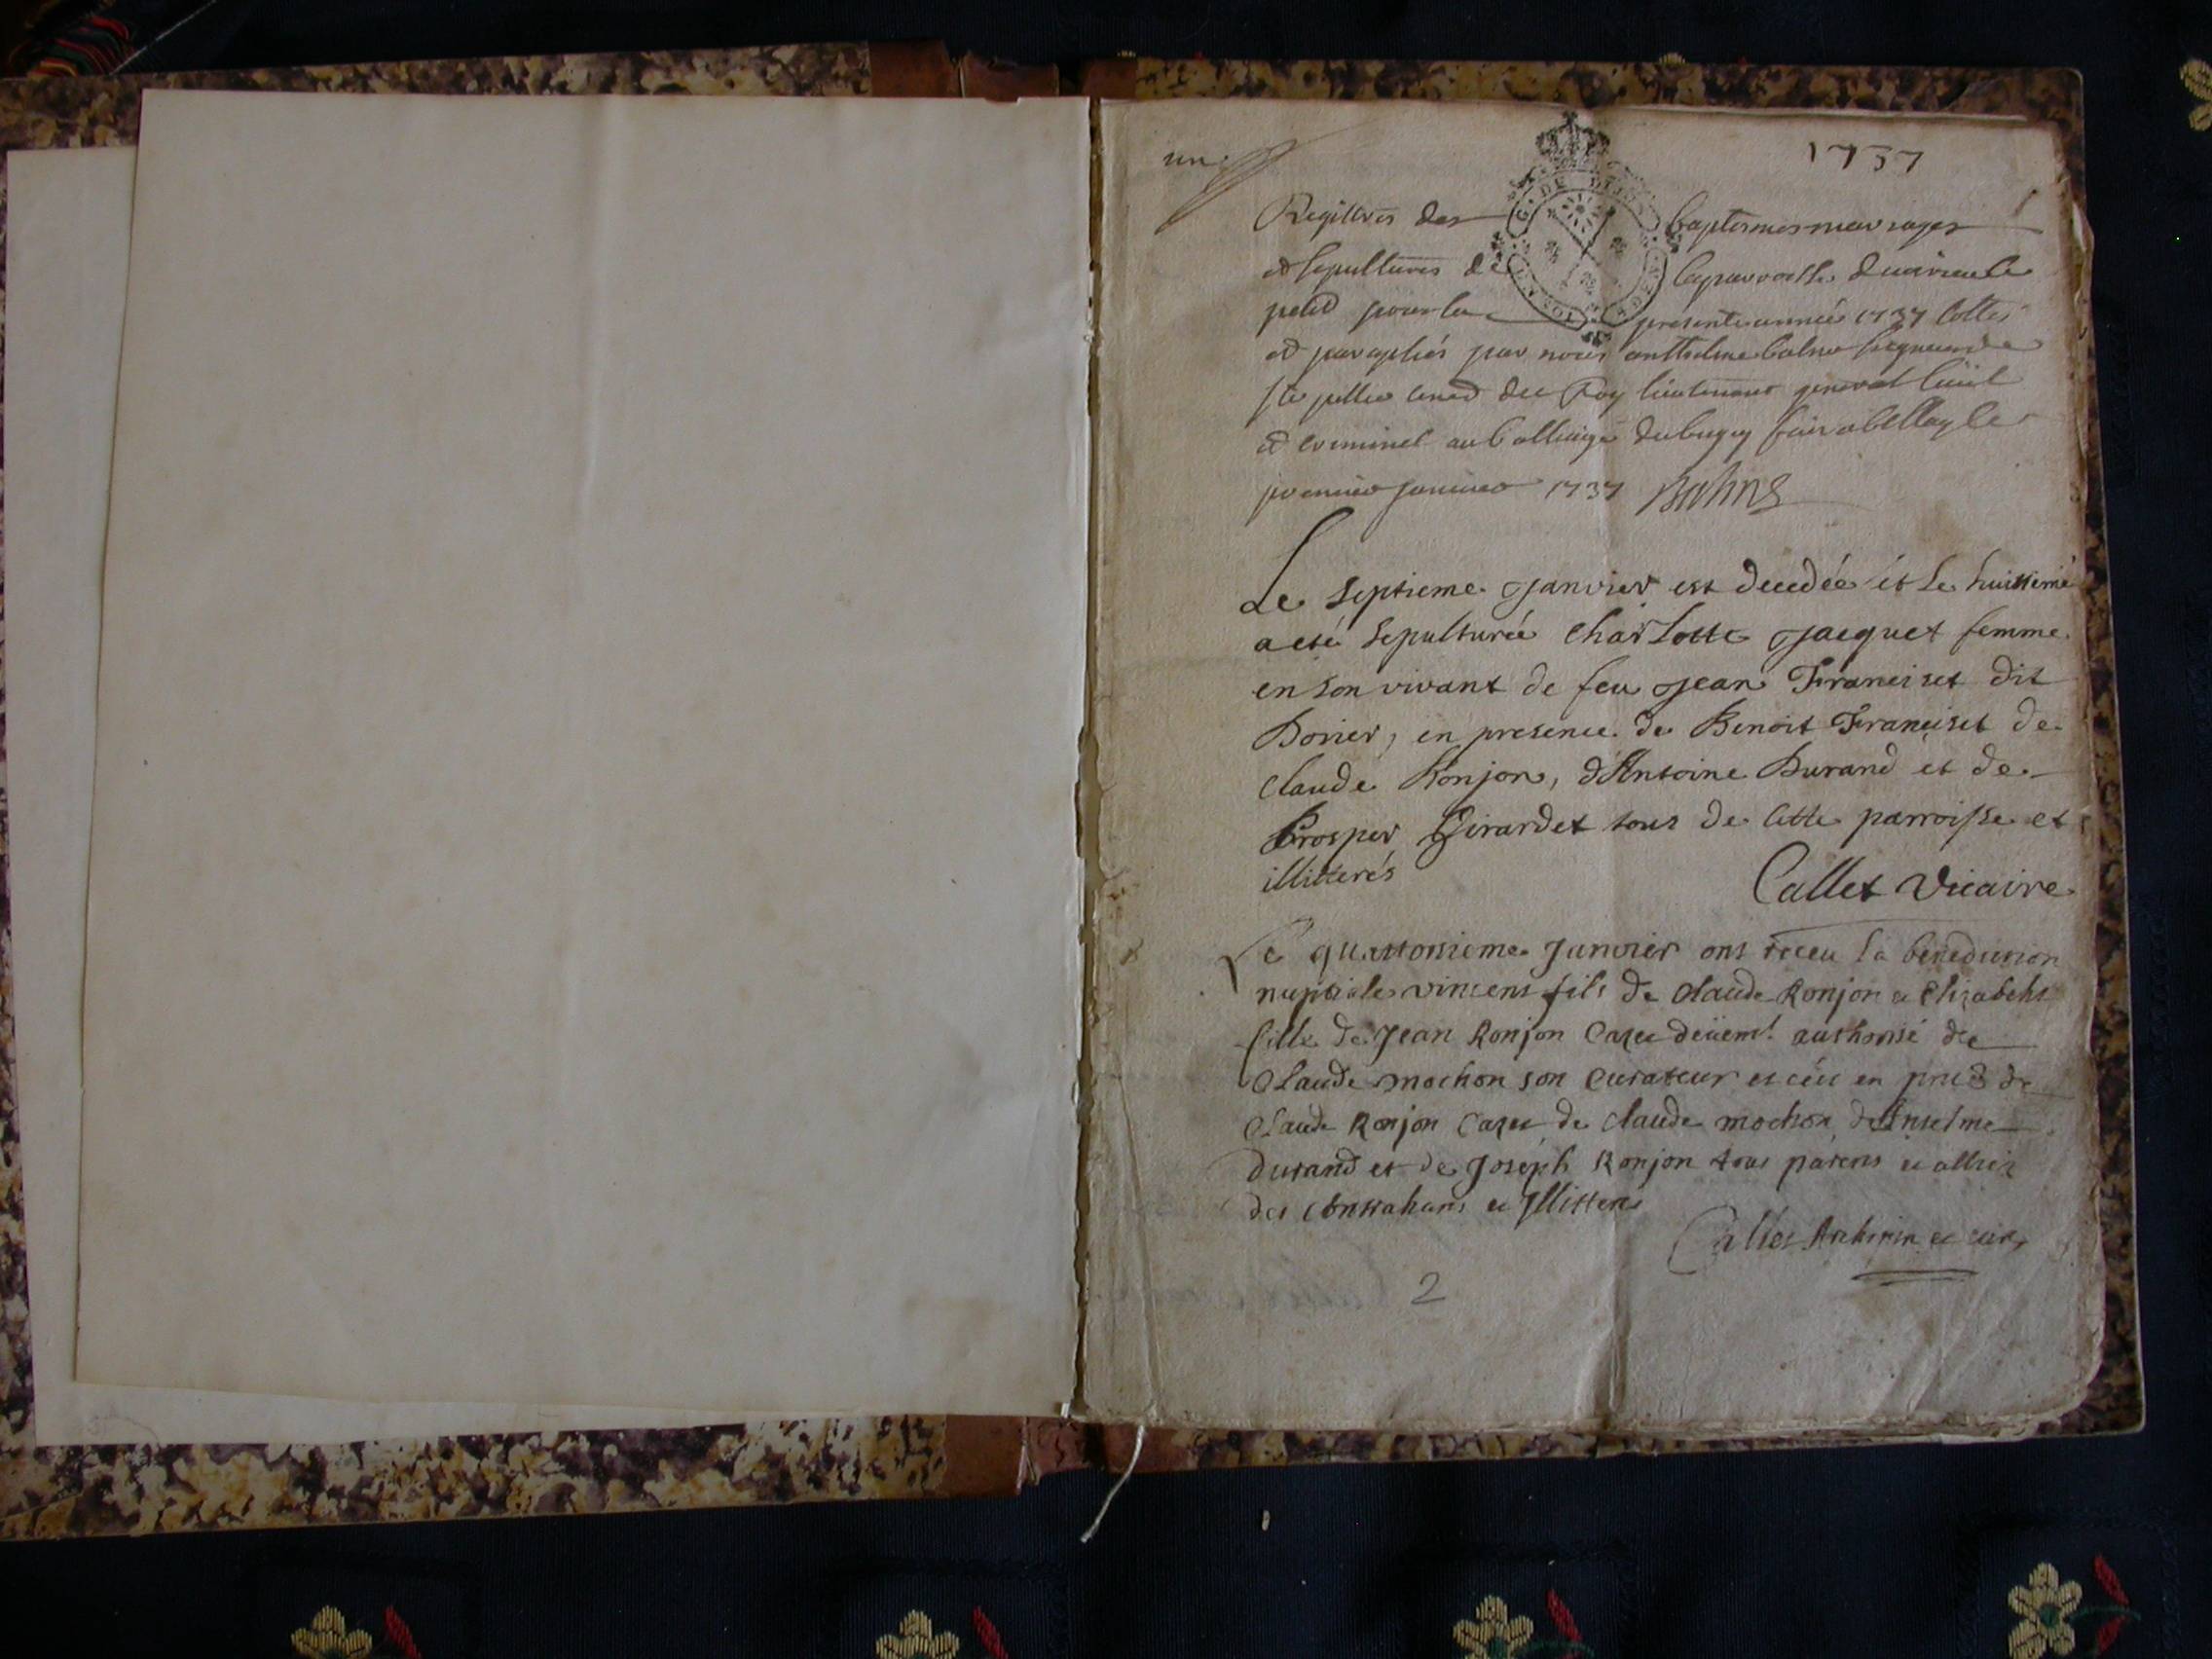 un
1737
G. DE DIJON
Registres des baptesmes mariages
et sepultures de la parroisse
petit pour la presente année 1737 cottés
et paraphés par nous anthelme balme seigneur de
Ste Jullie du Roy lieutenant general civil
et criminel au balliage du bugey fait a bellay le
premier janvier 1737 Balme
Le septieme janvier est decedée et le huittieme
a eté sepulturée Charlotte Jacquet femme
en son vivant de feu Jean Franciset dit
Borier, en presence de Benoit Franciset de
Claude Ronjon, d'Antoine Durand et de
Prosper Girardet tous de cette parroisse et
illitterés
Callet Vicaire
Le quattorsieme Janvier ont receu la benediction
nuptiale vincent fils de Claude Ronjon et Elizabeht
fille de Jean Ronjon deüemt. authorisé de
Claude mochon son curateur et céé en de
Claude Ronjon de Claude mochon d'Anselme
durand et de Joseph Ronjon tous parens et alliez
des contrahans et Illitterés
Callet et
2